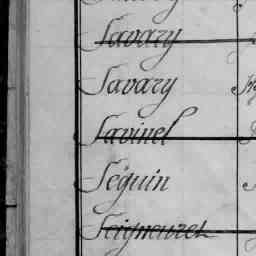 Savary
Savary
Savinel
Séguin
Seigneuret